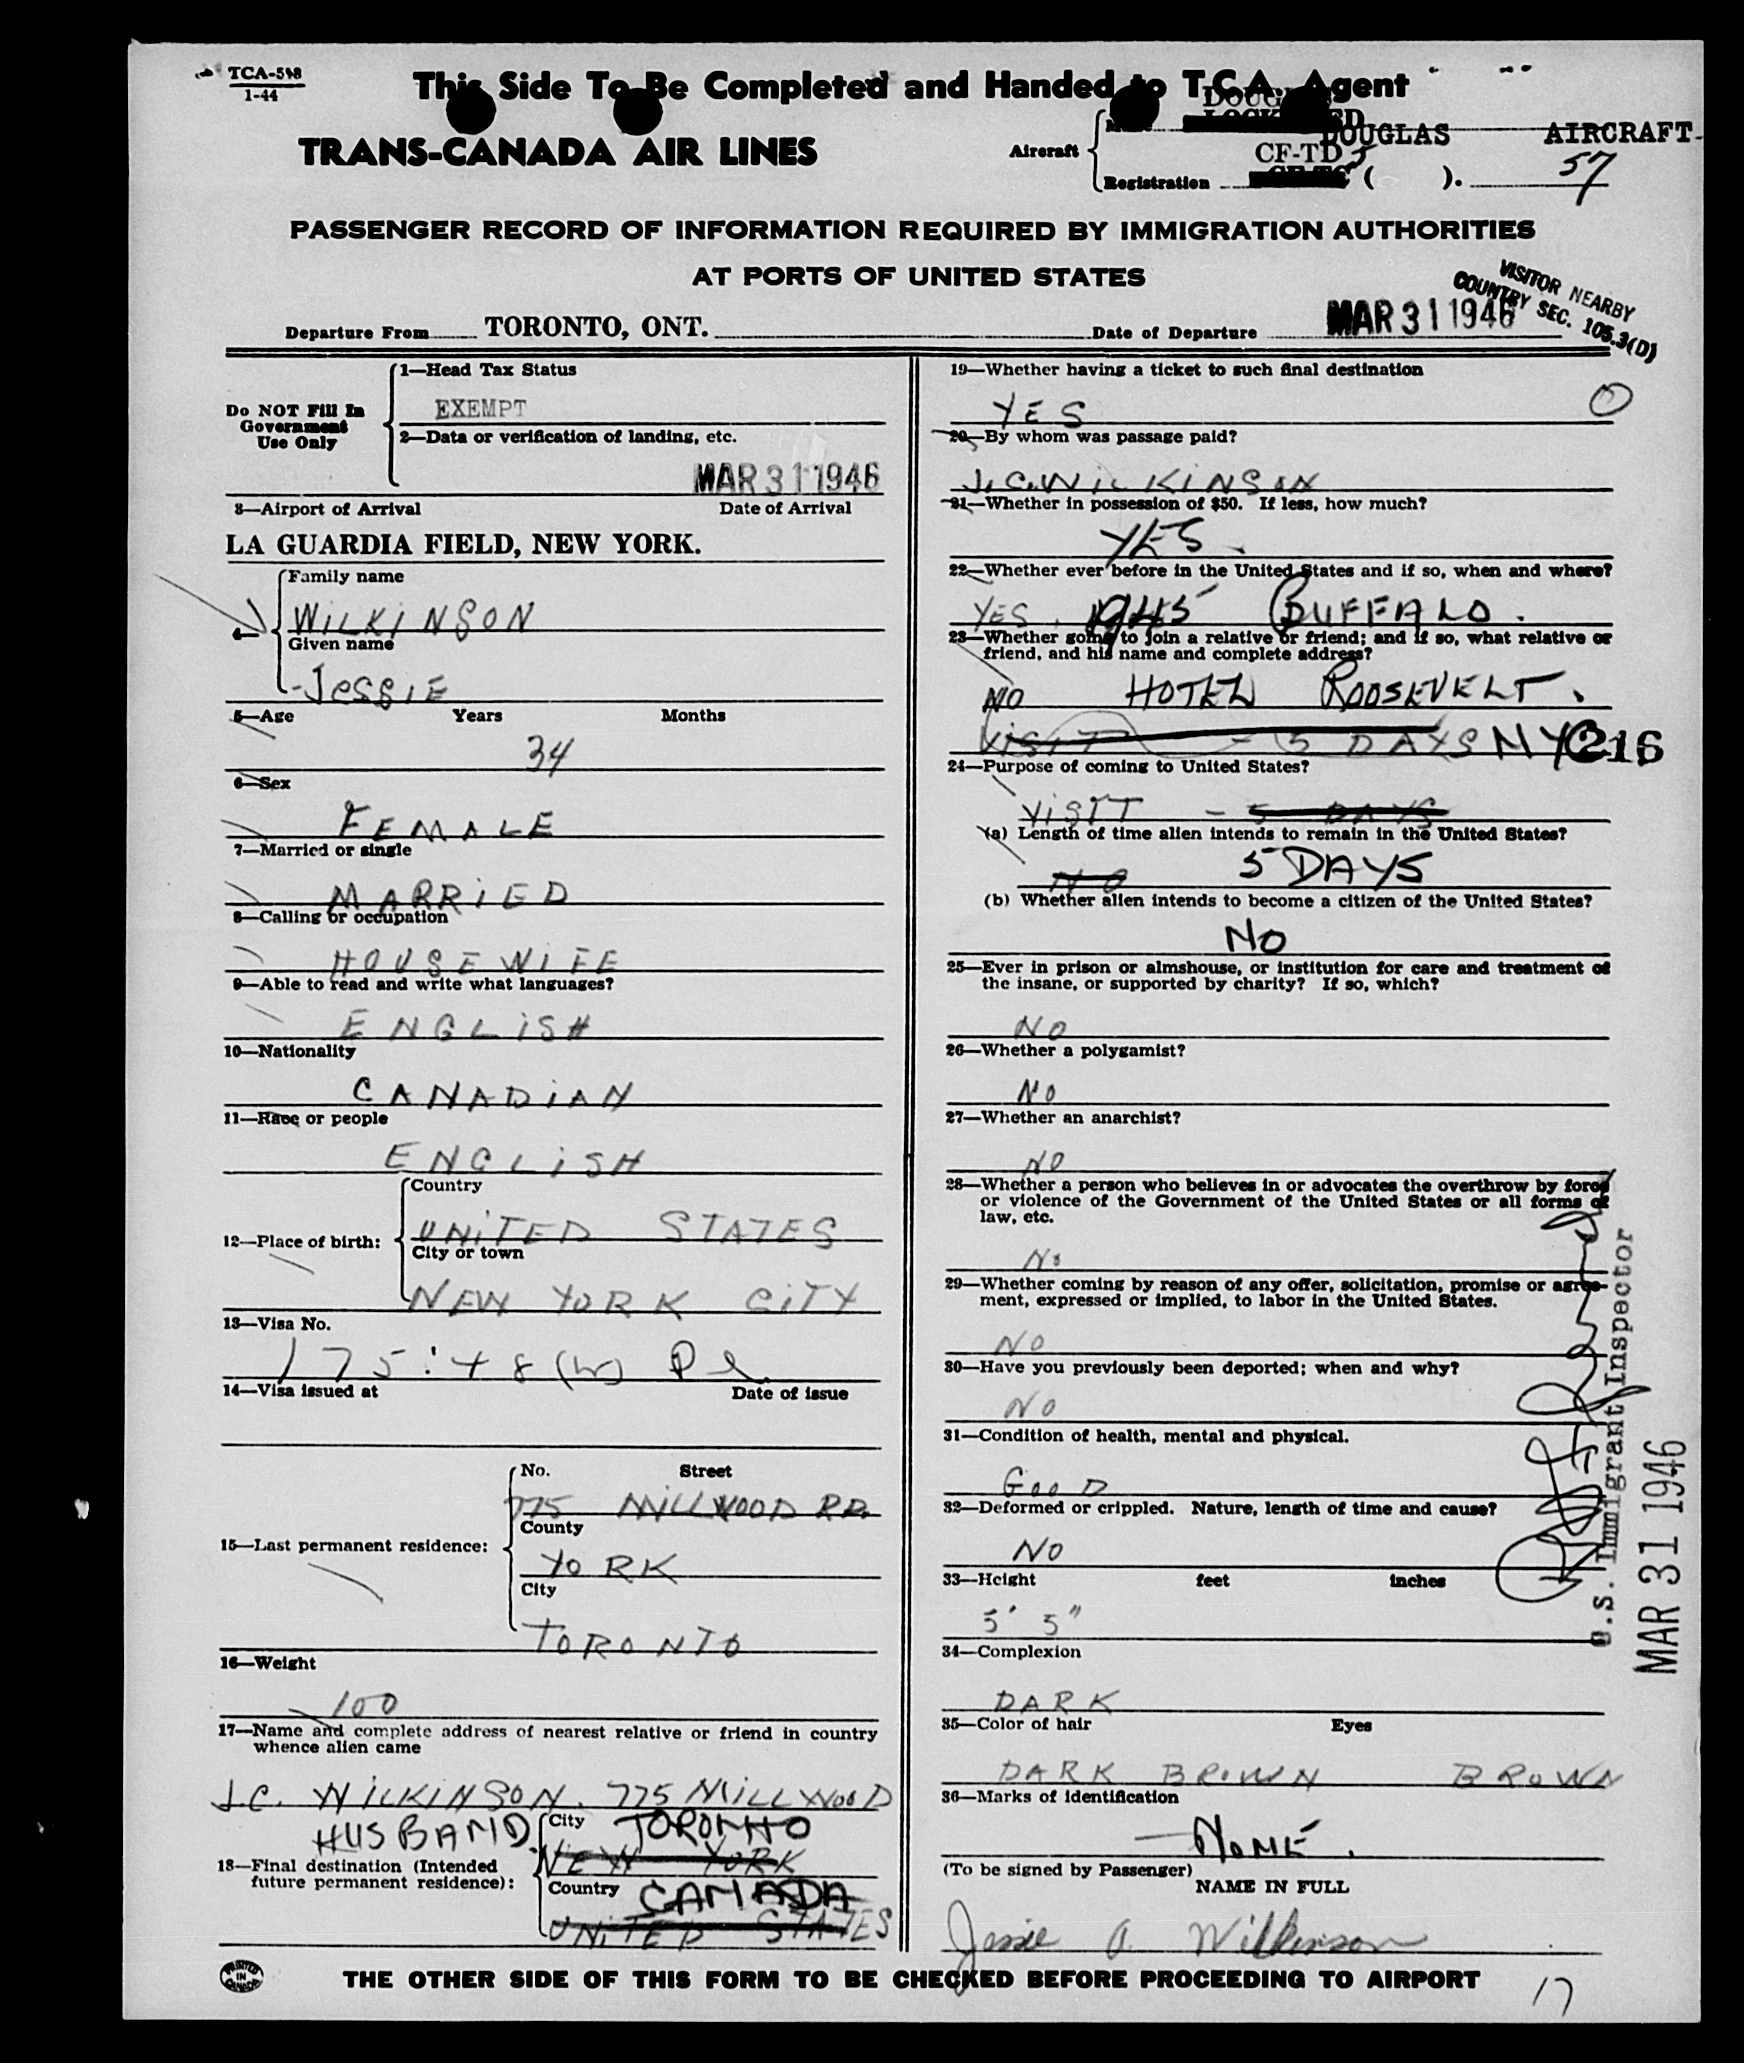 TCA-518
1-44
This Side To Be Completed and Handed to T.C.A. Agent
TRANS-CANADA AIR LINES
DOUGLAS
Aircraft
DOUGLAS AIRCRAFT
CF-TD
Registration ( ). 57
PASSENGER RECORD OF INFORMATION REQUIRED BY IMMIGRATION AUTHORITIES
AT PORTS OF UNITED STATES
VISITOR NEARBY
COUNTRY SEC. 105.3(D)
Departure From TORONTO, ONT. Date of Departure MAR 31 1946
Do NOT Fill In
Government
Use Only
1—Head Tax Status
EXEMPT
2—Data or verification of landing, etc.
MAR 31 1946
3—Airport of Arrival Date of Arrival
LA GUARDIA FIELD, NEW YORK.
Family name
WILKINSON
4—
Given name
JESSIE
5—Age Years Months
34
6—Sex
FEMALE
7—Married or single
MARRIED
8—Calling or occupation
HOUSEWIFE
9—Able to read and write what languages?
ENGLISH
10—Nationality
CANADIAN
11—Race or people
ENGLISH
12—Place of birth:
Country
UNITED STATES
City or town
NEW YORK CITY
13—Visa No.
14—Visa issued at Date of issue
15—Last permanent residence:
No. Street
775 MILLWOOD RD.
County
YORK
City
TORONTO
16—Weight
100
17—Name and complete address of nearest relative or friend in country
whence alien came
J.C. WILKINSON. 775 MILLWOOD
HUSBAND
18—Final destination (Intended
future permanent residence):
City TORONTO
NEW YORK
Country CANADA
UNITED STATES
19—Whether having a ticket to such final destination
YES
20—By whom was passage paid?
J.C. WILKINSON
21—Whether in possession of $50. If less, how much?
YES
22—Whether ever before in the United States and if so, when and where?
YES, 1945 BUFFALO.
23—Whether going to join a relative or friend; and if so, what relative or
friend, and his name and complete address?
NO HOTEL ROOSEVELT.
VISIT - 5 DAYS NYC 216
24—Purpose of coming to United States?
VISIT - 5 DAYS
(a) Length of time alien intends to remain in the United States?
NO 5 DAYS
(b) Whether alien intends to become a citizen of the United States?
NO
25—Ever in prison or almshouse, or institution for care and treatment of
the insane, or supported by charity? If so, which?
NO
26—Whether a polygamist?
NO
27—Whether an anarchist?
NO
28—Whether a person who believes in or advocates the overthrow by force
or violence of the Government of the United States or all forms of
law, etc.
NO
29—Whether coming by reason of any offer, solicitation, promise or agree-
ment, expressed or implied, to labor in the United States.
NO
30—Have you previously been deported; when and why?
NO
31—Condition of health, mental and physical.
GOOD
32—Deformed or crippled. Nature, length of time and cause?
NO
33—Height feet inches
5' 5"
34—Complexion
DARK
35—Color of hair Eyes
DARK BROWN BROWN
36—Marks of identification
—NONE.
(To be signed by Passenger)
NAME IN FULL
Jessie A. Wilkinson
U.S. Immigrant Inspector
MAR 31 1946
PRINTED
IN
CANADA
THE OTHER SIDE OF THIS FORM TO BE CHECKED BEFORE PROCEEDING TO AIRPORT
17